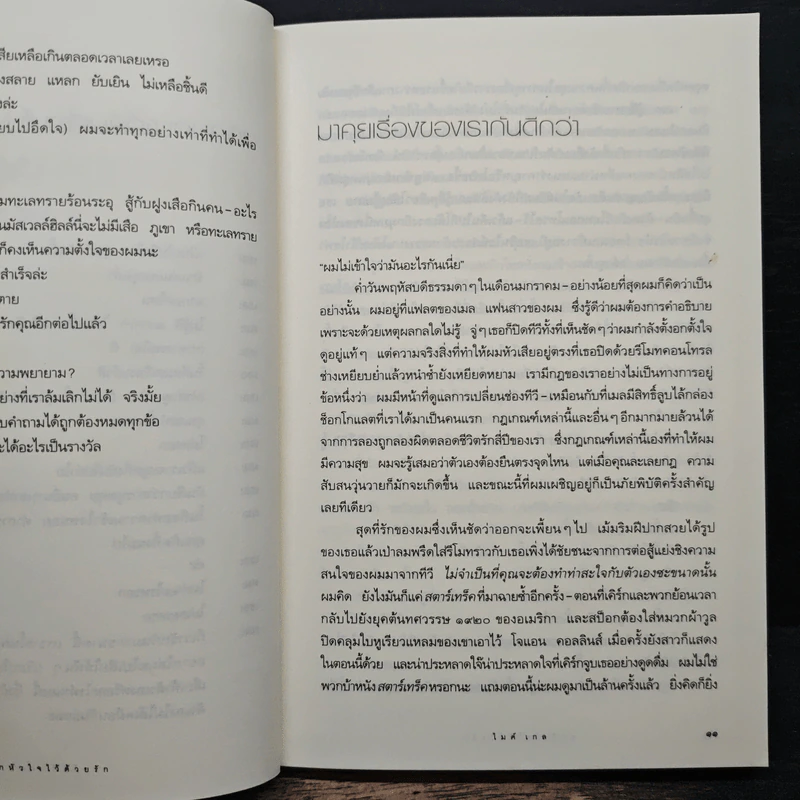 สียเหลือเกินตลอดเวลาเลยเหรอ
งสลาย แหลก ยับเยิน ไม่เหลือชิ้นดี
งล่ะ
ยบไปอึดใจ) ผมจะทำทุกอย่างเท่าที่ทำได้เพื่อ
มทะเลทรายร้อนระอุ สู้กับฝูงเสือกินคน–อะไร
นมัสเวลล์ฮิลล์นี่จะไม่มีเสือ ภูเขา หรือทะเลทราย
ก็คงเห็นความตั้งใจของผมนะ
สำเร็จล่ะ
ตาย
รักคุณอีกต่อไปแล้ว
ความพยายาม?
ย่างที่เราล้มเลิกไม่ได้ จริงมั้ย
บคำถามได้ถูกต้องหมดทุกข้อ
ะได้อะไรเป็นรางวัล
กหัวใจไว้ด้วยรัก
มาคุยเรื่องของเรากันดีกว่า
"ผมไม่เข้าใจว่ามันอะไรกันเนี่ย"
ค่ำวันพฤหัสบดีธรรมดาๆ ในเดือนมกราคม–อย่างน้อยที่สุดผมก็คิดว่าเป็น
อย่างนั้น ผมอยู่ที่แฟลตของเมล แฟนสาวของผม ซึ่งรู้ดีว่าผมต้องการคำอธิบาย
เพราะจะด้วยเหตุผลกลใดไม่รู้ จู่ๆ เธอก็ปิดทีวีทั้งที่เห็นชัดๆ ว่าผมกำลังตั้งอกตั้งใจ
ดูอยู่แท้ๆ แต่ความจริงสิ่งที่ทำให้ผมหัวเสียอยู่ตรงที่เธอปิดด้วยรีโมทคอนโทรล
ช่างเหยียบย่ำแล้วหนำซ้ำยังเหยียดหยาม เรามีกฎของเราอย่างไม่เป็นทางการอยู่
ข้อหนึ่งว่า ผมมีหน้าที่ดูแลการเปลี่ยนช่องทีวี–เหมือนกับที่เมลมีสิทธิ์ลูบไล้กล่อง
ช็อกโกแลตที่เราได้มาเป็นคนแรก กฎเกณฑ์เหล่านี้และอื่นๆ อีกมากมายล้วนได้
จากการลองถูกลองผิดตลอดชีวิตรักสี่ปีของเรา ซึ่งกฎเกณฑ์เหล่านี้เองที่ทำให้ผม
มีความสุข ผมจะรู้เสมอว่าตัวเองต้องยืนตรงจุดไหน แต่เมื่อคุณละเลยกฎ ความ
สับสนวุ่นวายก็มักจะเกิดขึ้น และขณะนี้ที่ผมเผชิญอยู่ก็เป็นภัยพิบัติครั้งสำคัญ
เลยทีเดียว
สุดที่รักของผมซึ่งเห็นชัดว่าออกจะเพี้ยนๆ ไป เม้มริมฝีปากสวยได้รูป
ของเธอแล้วเป่าลมพรืดใส่รีโมทราวกับเธอเพิ่งได้ชัยชนะจากการต่อสู้แย่งชิงความ
สนใจของผมมาจากทีวี ไม่จำเป็นที่คุณจะต้องทำท่าสะใจกับตัวเองซะขนาดนั้น
ผมคิด ยังไงมันก็แค่ สตาร์เทร็ค ที่มาฉายซ้ำอีกครั้ง–ตอนที่เคิร์กและพวกย้อนเวลา
กลับไปยังยุคต้นทศวรรษ ๑๙๒๐ ของอเมริกา และสป็อกต้องใส่หมวกผ้าวูล
ปิดคลุมใบหูเรียวแหลมของเขาเอาไว้ โจแอน คอลลินส์ เมื่อครั้งยังสาวก็แสดง
ในตอนนี้ด้วย และน่าประหลาดใจ๊น่าประหลาดใจที่เคิร์กจูบเธออย่างดูดดื่ม ผมไม่ใช่
พวกบ้าหนัง สตาร์เทร็ค หรอกนะ แถมตอนนี้น่ะผมดูมาเป็นล้านครั้งแล้ว ยิ่งคิดก็ยิ่ง
ไมค์ เกล
๑๑